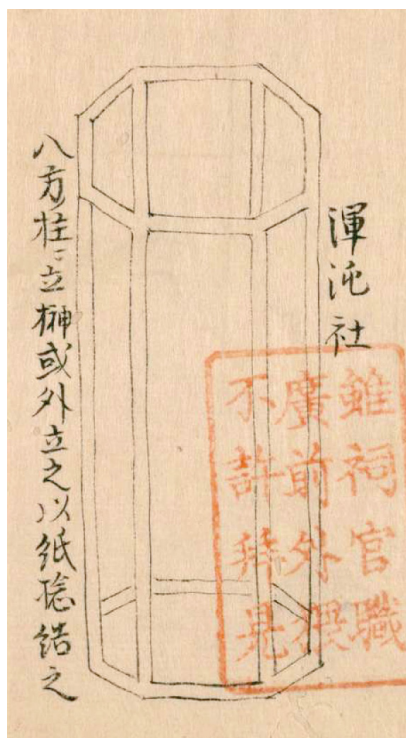 渾沌社
雖祠官職
廣前外猥
不許拜見
八方柱ニ立榊或外立之以紙捻結之